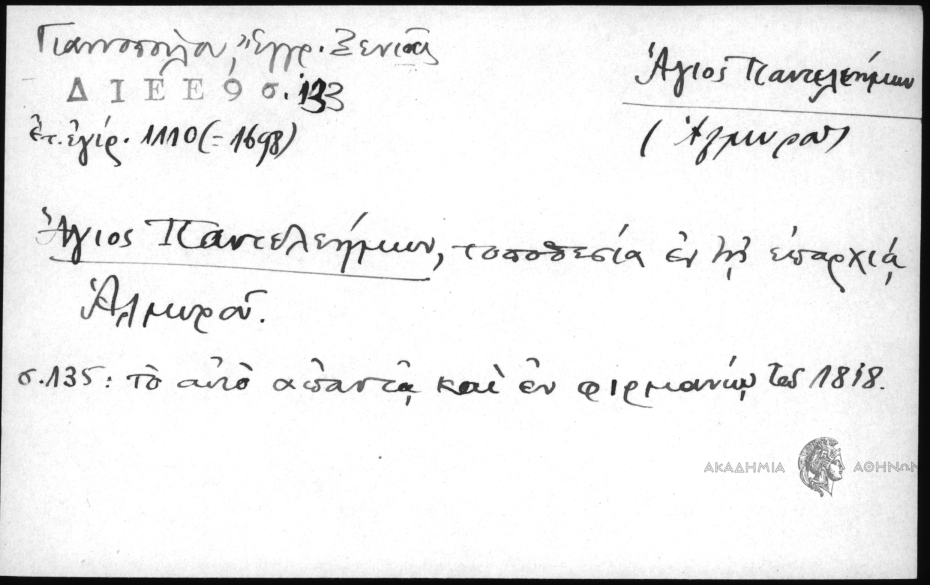 Γιαννοπούλου, Ἔγγρ. Ξενιᾶς
ΔΙΕΕ 9 σ. 133
ἔτ. ἐγίρ. 1110 (= 1698)
Ἅγιος Παντελεήμων
(Ἁλμυροῦ)
Ἅγιος Παντελεήμων, τοποθεσία ἐν τῇ ἐπαρχίᾳ
Ἁλμυροῦ.
σ. 135: τὸ αὐτὸ ἀπαντᾷ καὶ ἐν φιρμανίῳ τοῦ 1818.
ΑΚΑΔΗΜΙΑ ΑΘΗΝΩΝ